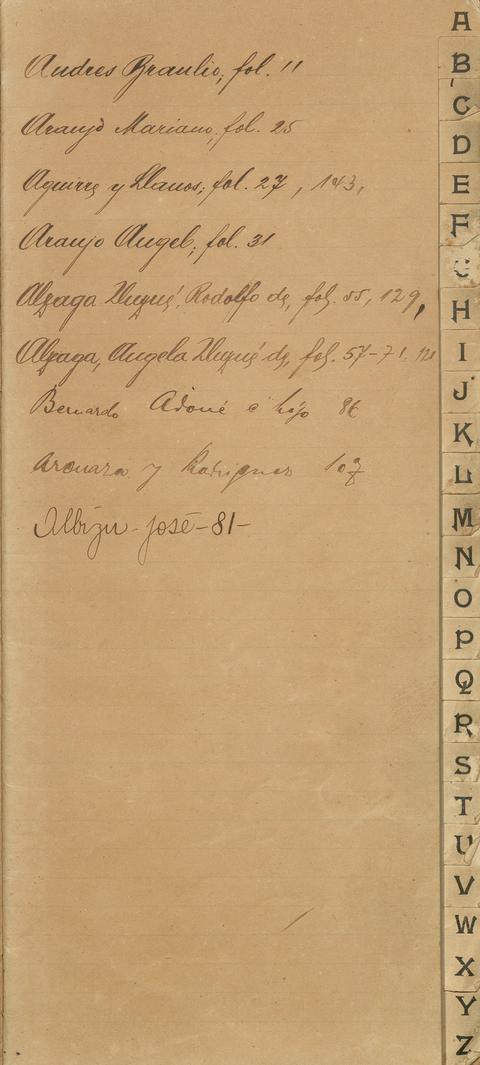 Andres Braulio, fol. 11
Araujo Mariano, fol. 25
Aguirre y Llanos; fol. 27, 143,
Araujo Angel; fol. 31
Alzaga Unzué, Rodolfo de, fol. 55, 129,
Alzaga, Angela Unzué de, fol. 57-71. 128
Bernardo Adoné é hijo 86
y Rodriguez 107
Albizu - José - 81 -
A
B
C
D
E
F
G
H
I
J
K
L
M
N
O
P
Q
R
S
T
U
V
W
X
Y
Z